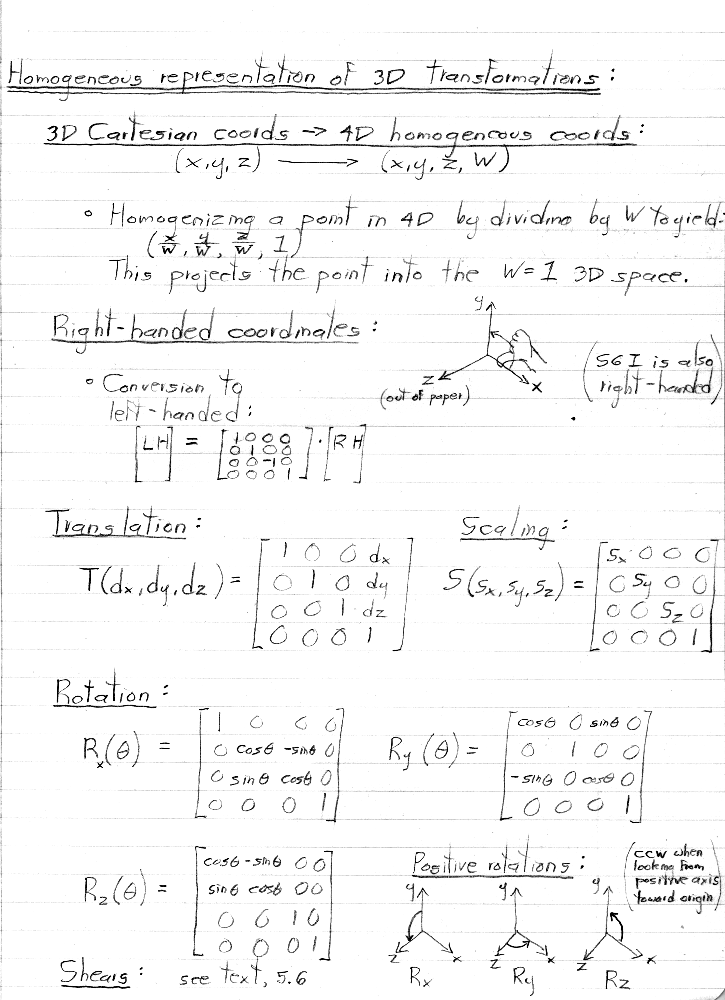 Homogeneous representation of 3D transformations:
3D Cartesian coords → 4D homogeneous coords:
(x,y,z) ⟶ (x,y,z,W)
° Homogenizing a point in 4D by dividing by W to yield:
(x/W, y/W, z/W, 1)
This projects the point into the W=1 3D space.
Right-handed coordinates:
y
z
x
(out of paper)
(SGI is also
right-handed)
° Conversion to
left-handed:
[LH] = [1 0 0 0
0 1 0 0
0 0 -1 0
0 0 0 1] · [RH]
Translation:
T(dx,dy,dz) = [1 0 0 dx
0 1 0 dy
0 0 1 dz
0 0 0 1]
Scaling:
S(Sx,Sy,Sz) = [Sx 0 0 0
0 Sy 0 0
0 0 Sz 0
0 0 0 1]
Rotation:
Rx(θ) = [1 0 0 0
0 cosθ -sinθ 0
0 sinθ cosθ 0
0 0 0 1]
Ry(θ) = [cosθ 0 sinθ 0
0 1 0 0
-sinθ 0 cosθ 0
0 0 0 1]
Rz(θ) = [cosθ -sinθ 0 0
sinθ cosθ 0 0
0 0 1 0
0 0 0 1]
Positive rotations:
(CCW when
looking from
positive axis
toward origin)
y z x Rx
y z x Ry
y z x Rz
Shears: see text, 5.6